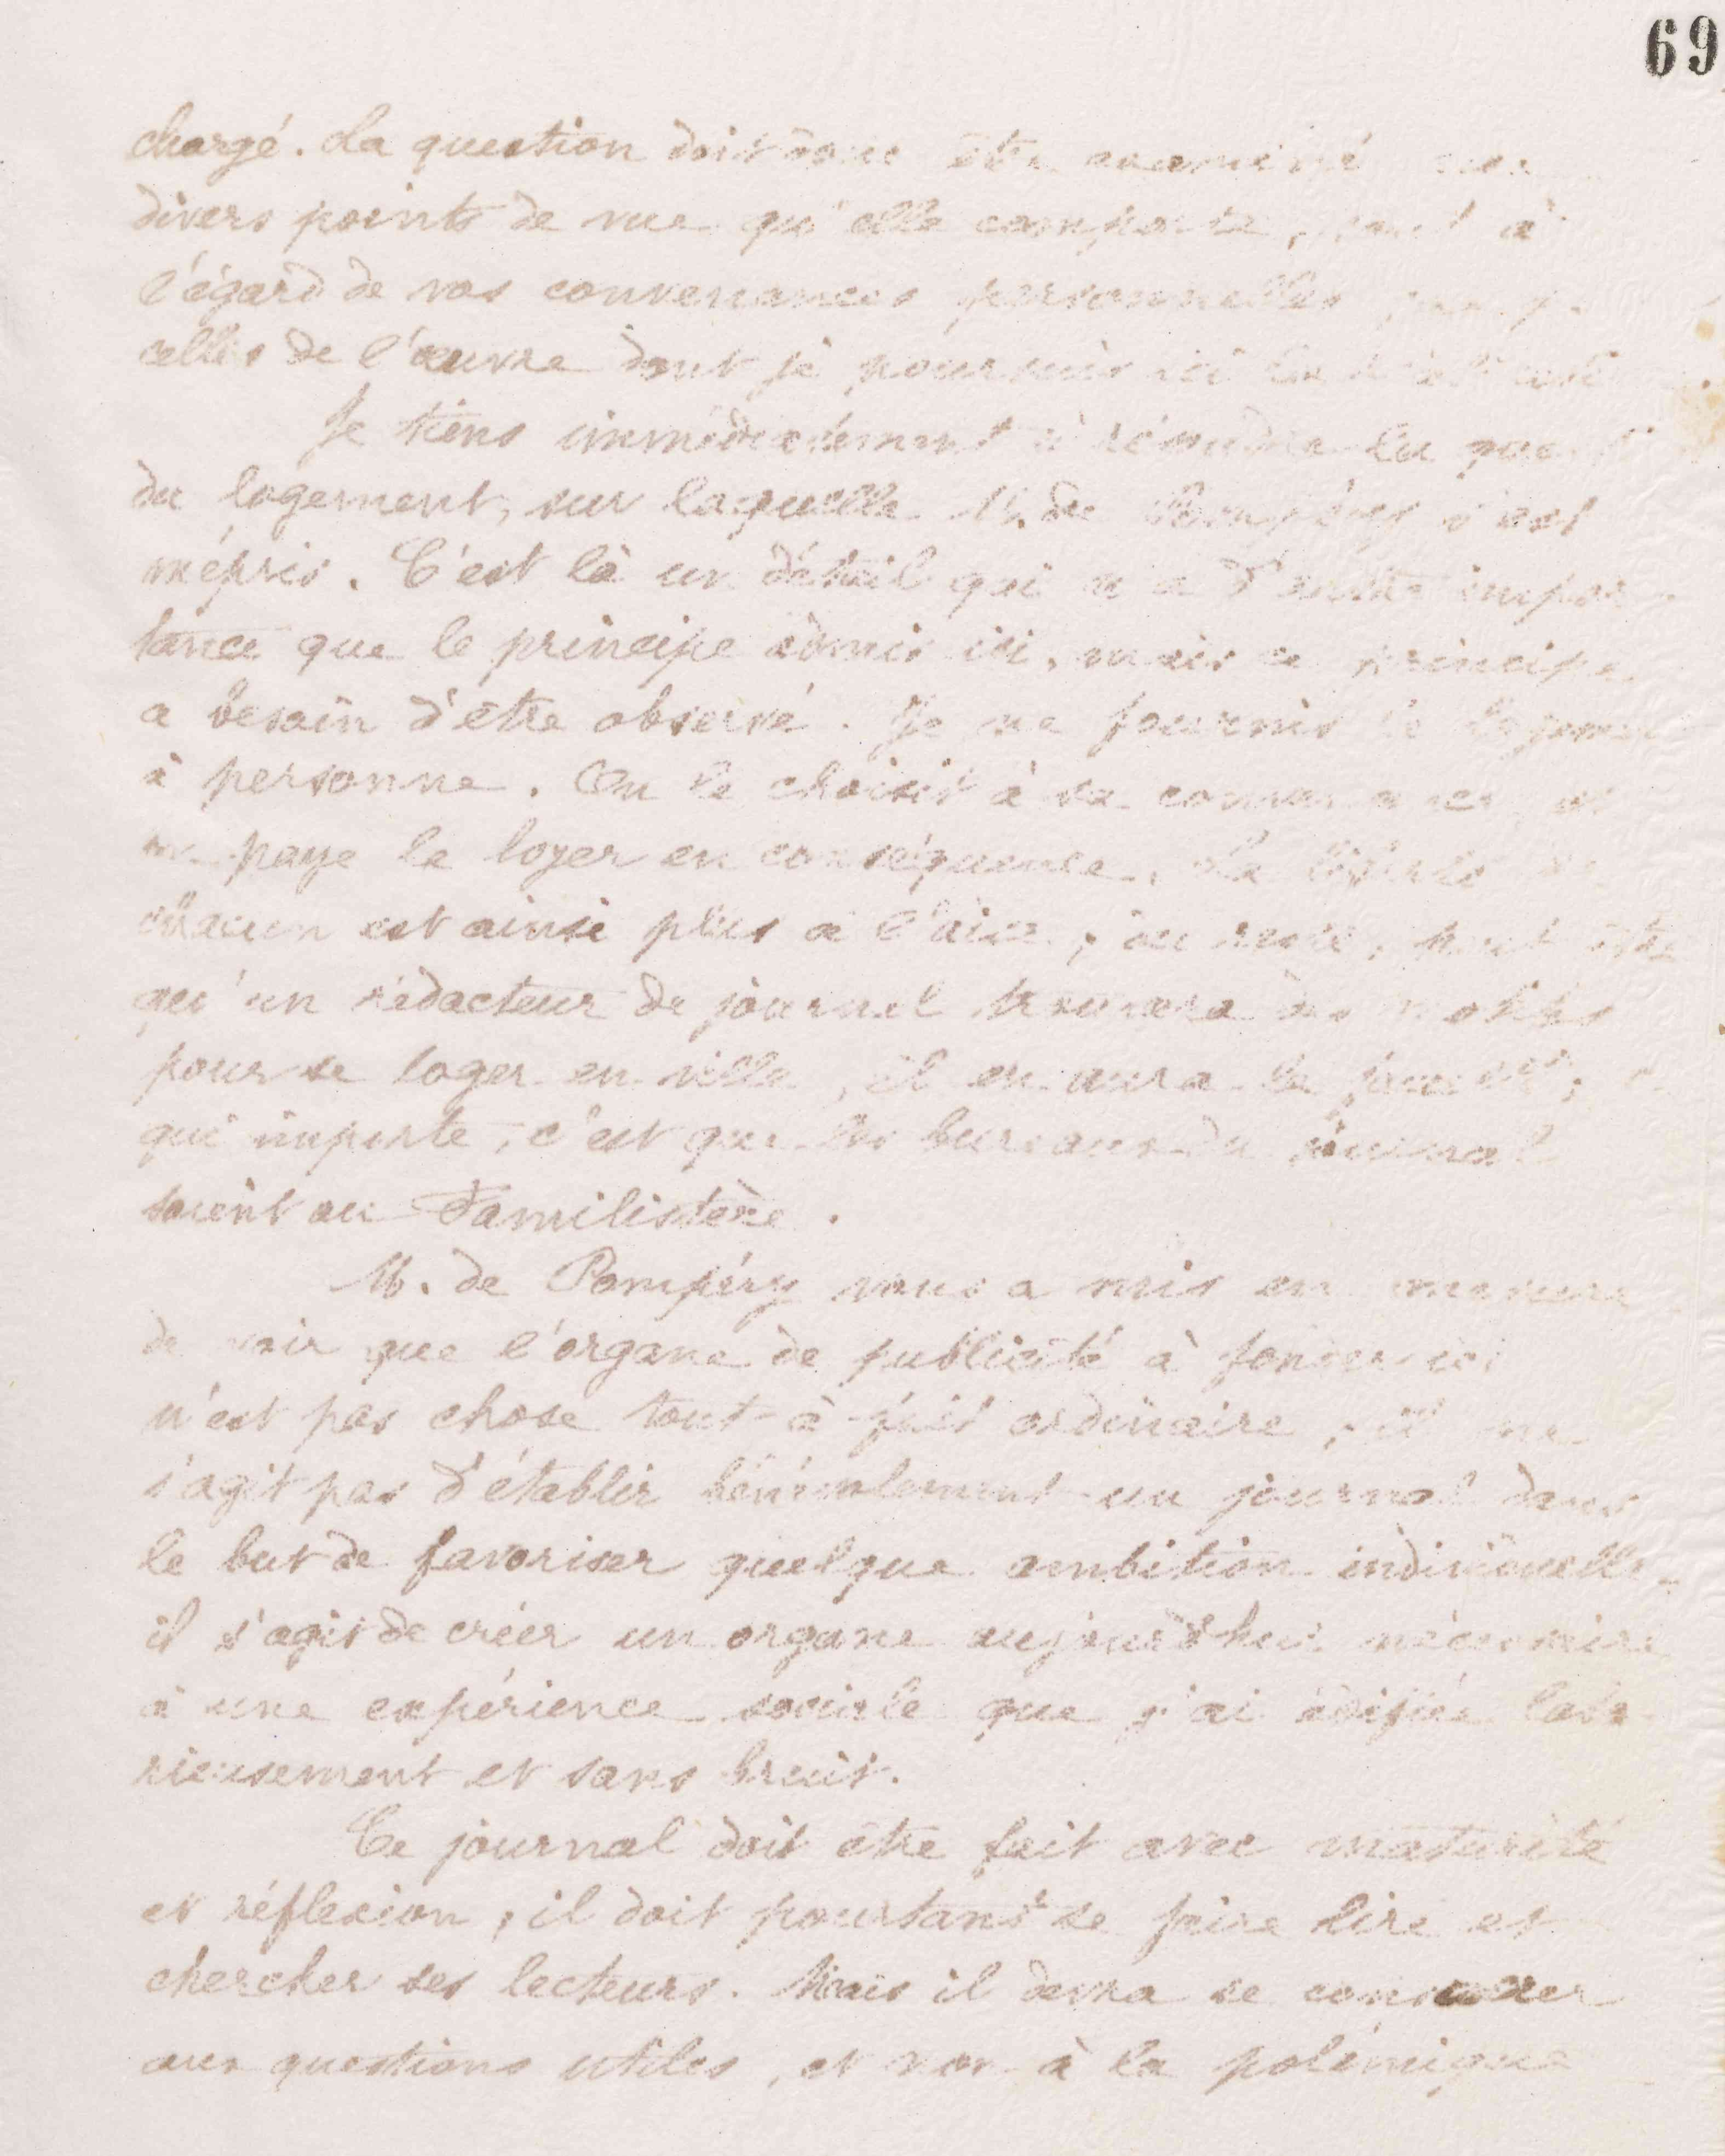 69
chargé. La question doit donc être examiné
divers points de vue qu'elle comporte, tant à
l'égard de vos convenances personnelles
celles de l'œuvre dont je poursuis ici
Je tiens immédiatement à résoudre la
du logement, sur laquelle M. de Pompéry s'est
mépris. C'est là un détail qui n'a d'autre impor-
tance que le principe admis ici, mais ce principe
a besoin d'être observé. Je ne fournis le logement
à personne. On le choisit à sa convenance et
on paye le loyer en conséquence. La liberté de
chacun est ainsi plus à l'aise ; du reste, peut être
qu'un rédacteur de journal trouvera des motifs
pour se loger en ville, il en aura la faculté ;
qui importe, c'est que les bureaux du journal
soient au Familistère.
M. de Pompéry vous a mis en mesure
de voir que l'organe de publicité à fonder ici
n'est pas chose tout-à-fait ordinaire, il ne
s'agit pas d'établir bénévolement un journal dans
le but de favoriser quelque ambition individuelle
il s'agit de créer un organe aujourd'hui nécessaire
à une expérience sociale que j'ai édifiée labo-
rieusement et sans bruit.
Ce journal doit être fait avec maturité
et réflexion, il doit pourtant se faire lire et
chercher ses lecteurs. Mais il devra se consacrer
aux questions utiles, et non à la polémique